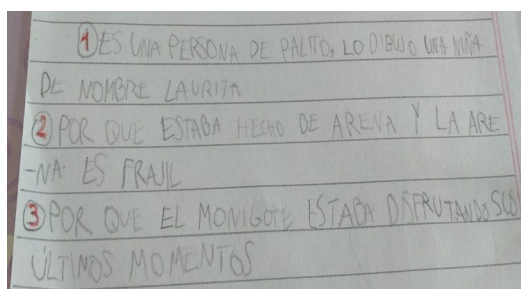 ① ES UNA PERSONA DE PALITO, LO DIBUJO UNA NIÑA
DE NOMBRE LAURITA
② POR QUE ESTABA HECHO DE ARENA Y LA ARE
-NA ES FRAJIL
③ POR QUE EL MONIGOTE ESTABA DISFRUTANDO SUS
ÚLTIMOS MOMENTOS